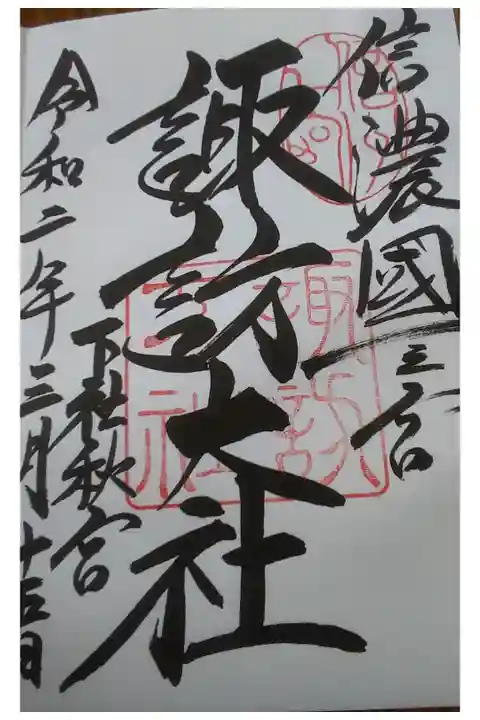 信濃國一之宮
諏訪大社
下社秋宮
令和二年三月十三日